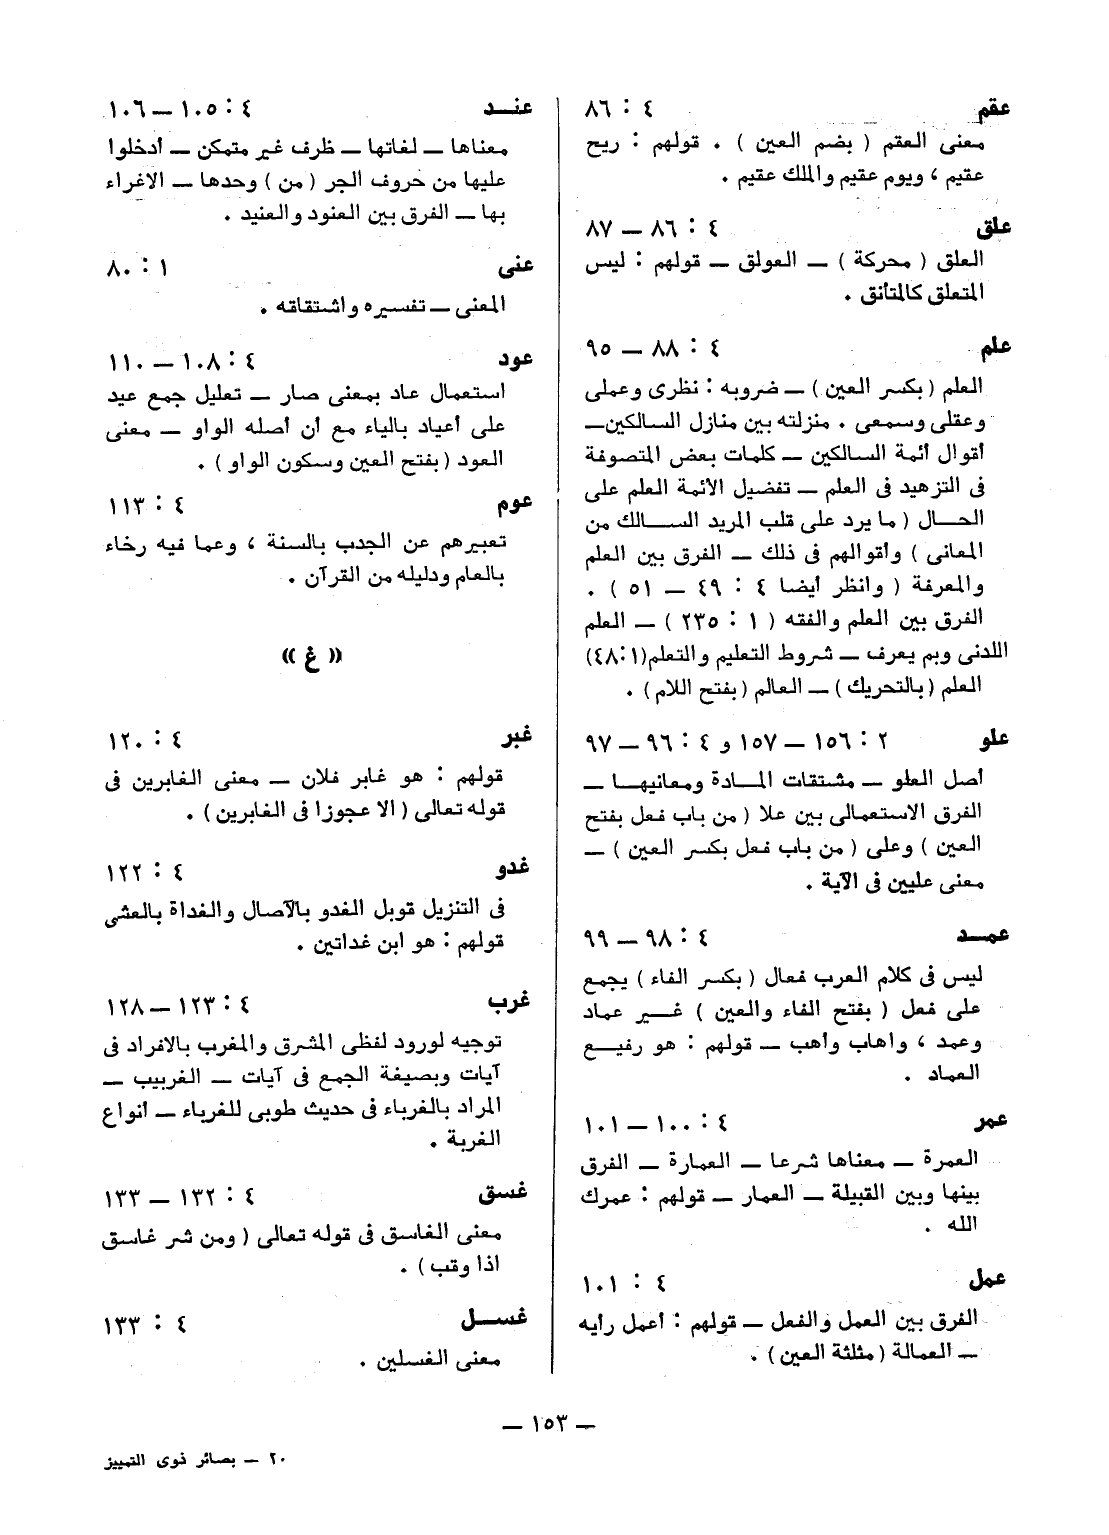 عقم ٤ : ٨٦
معنى العقم ( بضم العين ) . قولهم : ريح
عقيم ، ويوم عقيم والملك عقيم .
علق ٤ : ٨٦ ــ ٨٧
العلق ( محركة ) ــ العولق ــ قولهم : ليس
المتعلق كالمتأنق .
علم ٤ : ٨٨ ــ ٩٥
العلم ( بكسر العين ) ــ ضروبه : نظرى وعملى
وعقلى وسمعى . منزلته بين منازل السالكين ــ
أقوال أئمة السالكين ــ كلمات بعض المتصوفة
فى التزهيد فى العلم ــ تفضيل الأئمة العلم على
الحـال ( ما يرد على قلب المريد السـالك من
المعانى ) وأقوالهم فى ذلك ــ الفرق بين العلم
والمعرفة ( وانظر أيضا ٤ : ٤٩ ــ ٥١ ) .
الفرق بين العلم والفقه ( ١ : ٢٣٥ ) ــ العلم
اللدنى وبم يعرف ــ شروط التعليم والتعلم(١ :٤٨)
العلم ( بالتحريك ) ــ العالم ( بفتح اللام ) .
علو ٢ : ١٥٦ ــ ١٥٧ و ٤ : ٩٦ ــ ٩٧
أصل العلو ــ مشتقات المـادة ومعانيهـا ــ
الفرق الاستعمالى بين علا ( من باب فعل بفتح
العين ) وعلى ( من باب فعل بكسر العين ) ــ
معنى عليين فى الآية .
عمـد ٤ : ٩٨ ــ ٩٩
ليس فى كلام العرب فعال ( بكسر الفاء ) يجمع
على فعل ( بفتح الفاء والعين ) غـير عماد
وعمد ، وأهاب وأهب ــ قولهم : هو رفيـع
العماد .
عمر ٤ : ١٠٠ ــ ١٠١
العمرة ــ معناها شرعا ــ العمارة ــ الفرق
بينها وبين القبيلة ــ العمار ــ قولهم : عمرك
الله .
عمل ٤ : ١٠١
الفرق بين العمل والفعل ــ قولهم : أعمل رأيه
ــ العمالة ( مثلثة العين ) .
عنـد ٤ : ١٠٥ ــ ١٠٦
معناها ــ لغاتها ــ ظرف غير متمكن ــ أدخلوا
عليها من حروف الجر ( من ) وحدها ــ الاغراء
بها ــ الفرق بين العنود والعنيد .
عنى ١ : ٨٠
المعنى ــ تفسيره واشتقاقه .
عود ٤ : ١٠٨ ــ ١١٠
استعمال عاد بمعنى صار ــ تعليل جمع عيد
على أعياد بالياء مع أن أصله الواو ــ معنى
العود ( بفتح العين وسكون الواو ) .
عوم ٤ : ١١٣
تعبيرهم عن الجدب بالسنة ، وعما فيه رخاء
بالعام ودليله من القرآن .
« غ »
غبر ٤ : ١٢٠
قولهم : هو غابر فلان ــ معنى الغابرين فى
قوله تعالى ( الا عجوزا فى الغابرين ) .
غدو ٤ : ١٢٢
فى التنزيل قوبل الغدو بالآصال والغداة بالعشى
قولهم : هو ابن غداتين .
غرب ٤ : ١٢٣ ــ ١٢٨
توجيه لورود لفظى المشرق والمغرب بالافراد فى
آيات وبصيغة الجمع فى آيات ــ الغربيب ــ
المراد بالغرباء فى حديث طوبى للغرباء ــ أنواع
الغربة .
غسق ٤ : ١٣٢ ــ ١٣٣
معنى الغاسق فى قوله تعالى ( ومن شر غاسق
اذا وقب ) .
غسـل ٤ : ١٣٣
معنى الغسلين .
ــ ١٥٣ ــ
٢٠ ــ بصائر ذوى التمييز